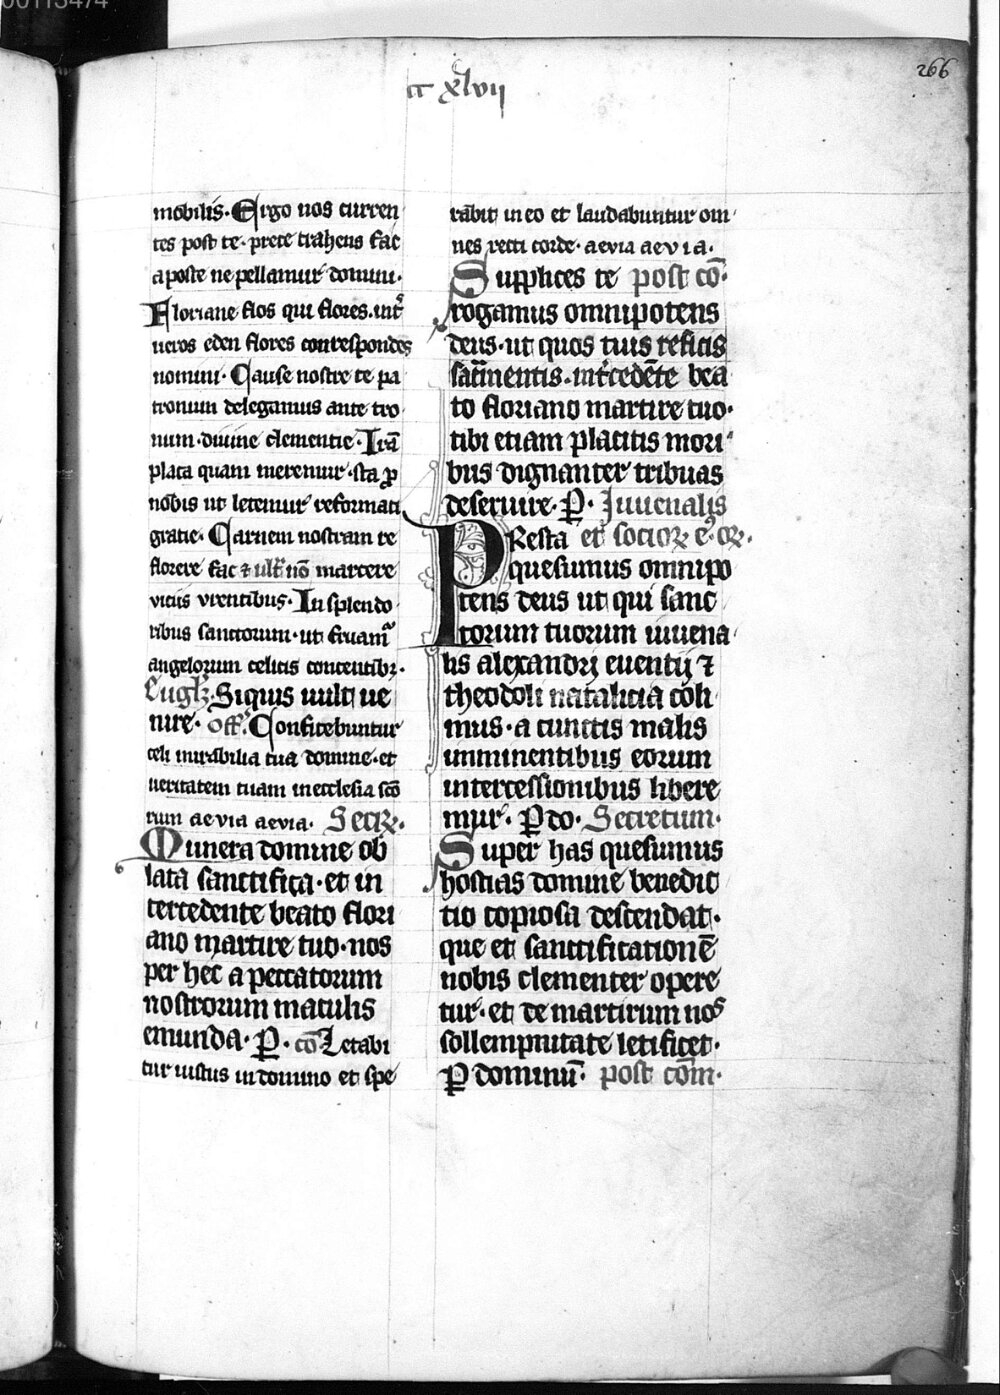 00113474
cc xlvij
266
mobilis. Ergo nos curren
tes post te. prece trahens fac
a poste ne pellamur domini.
Floriane flos qui flores. int̾
ueros eden flores correspondes
nomini. Cause nostre te pa
tronum delegamus ante tro
num. diuine clementie. Irā
placa quam meremur. sta ꝓ
nobis ut letemur reformati
gratie. Carnem nostram re
florere fac ⁊ ult̾ nō marcere
viciis virentibus. In splendo
ribus sanctorum. ut fruam̾
angelorum celicis concentibꝫ.
Siquis uult ue
nire. Off̾. Confitebuntur
celi mirabilia tua domine. et
ueritatem tuam in ecclesia scō
rum aevia aevia. Secrꝝ.
Munera domine ob
lata sanctifica. et in
tercedente beato flori
ano martire tuo. nos
per hec a peccatorum
nostrorum maculis
emunda. ꝑ. cō Letabi
tur iustus in domino et spe
rabit in eo et laudabuntur om
nes recti corde. aevia aevia.
Supplices te post cō.
rogamus omnipotens
deus. ut quos tuis reficis
sac̄mentis. int̾cedēte bea
to floriano martire tuo.
tibi etiam placitis mori
bus dignanter tribuas
deseruire. ꝑ. Iuuenalis
Presta et socioꝝ eꝰ. oꝝ.
quesumus omnipo
tens deus ut qui sanc
torum tuorum iuuena
lis alexandrj euentij ⁊
theodoli natalicia coli
mus. a cunctis malis
imminentibus eorum
intercessionibus libere
mur. ꝑ do. Secretum.
Super has quesumus
hostias domine benedic
tio copiosa descendat.
que et sanctificationē
nobis clementer opere
tur. et de martirum nos
sollempnitate letificet.
ꝑ dominū. post cōm.